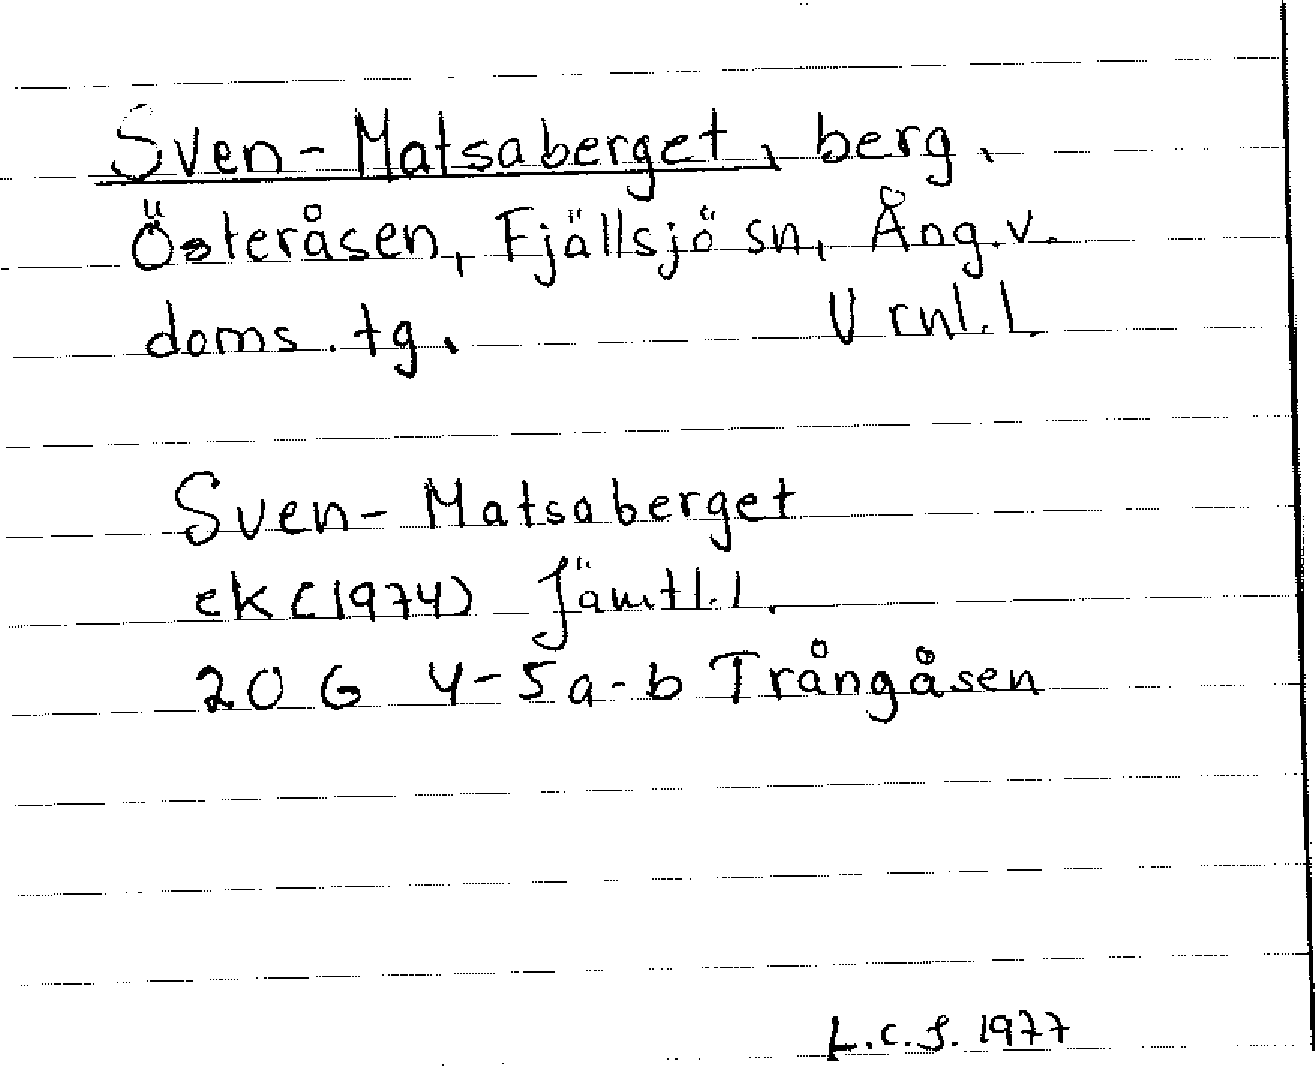 Sven-Matsaberget, berg,
Österåsen, Fjällsjö sn, Ång.v.
doms. tg. V rnl. L
Sven-Matsaberget
ek (1974) Jämtl. l.
20 G 4-5 a-b Trångåsen
L.C.J. 1977